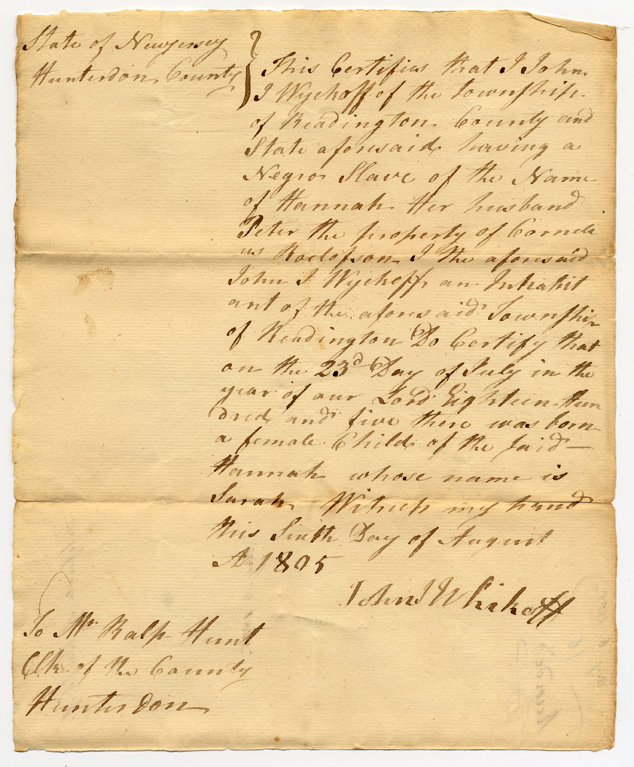 State of Newjersey
Hunterdon County
This Certifies that I John
I Wyckoff of the township
of Readington County and
State aforesaid having a
Negro Slave of the Name
of Hannah Her husband
Peter the property of Corneli
us Roelofson I the aforesaid
John I Wyckoff an Inhabit
ant of the afores aid Township
of Readington Do Certify that
on the 23d Day of July in the
year of our Lord Eighteen Hun
dred and five there was born
a female Child of the Said
Hannah whose name is
Sarah Witness my hand
this Sixth Day of August
A 1805
John I Whikoff
To Mr Ralph Hunt
Clk of the County
Hunterdon